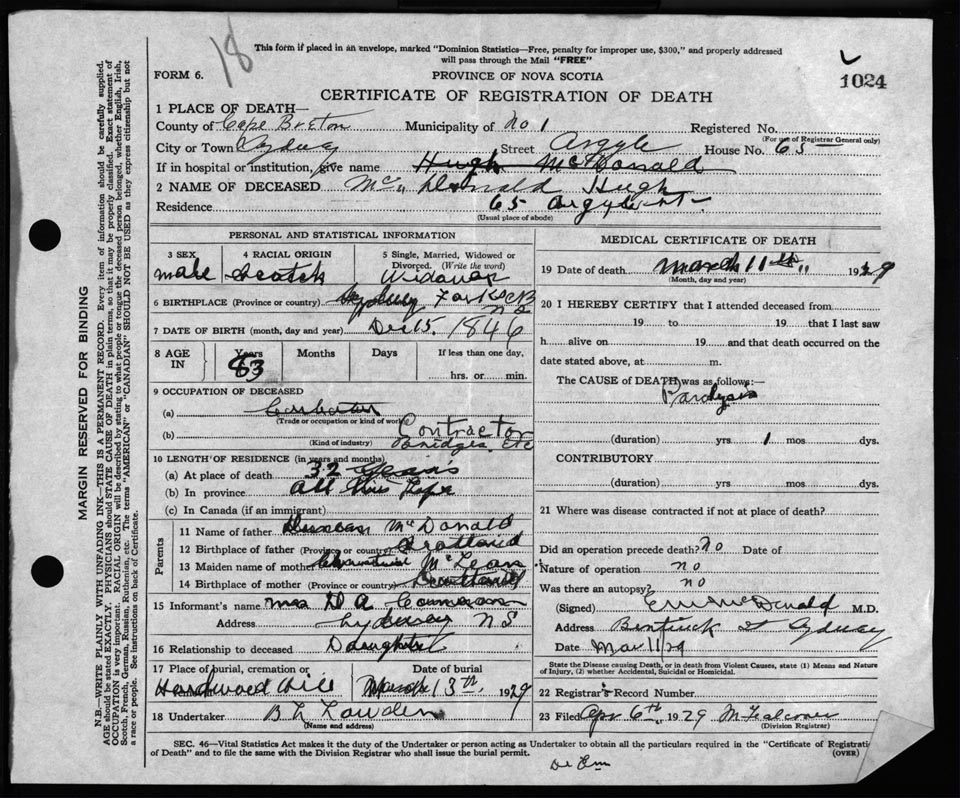 18
This form if placed in an envelope, marked "Dominion Statistics—Free, penalty for improper use, $300," and properly addressed
will pass through the Mail "FREE"
FORM 6.
PROVINCE OF NOVA SCOTIA
1024
CERTIFICATE OF REGISTRATION OF DEATH
1 PLACE OF DEATH—
County of Cape Breton Municipality of No 1 Registered No.
(For use of Registrar General only)
City or Town Sydney Street Argyle House No. 65
If in hospital or institution, give name Hugh McDonald
2 NAME OF DECEASED Mc Donald Hugh
Residence 65 Argyle st
(Usual place of abode)
PERSONAL AND STATISTICAL INFORMATION
3 SEX
male
4 RACIAL ORIGIN
Scotch
5 Single, Married, Widowed or
Divorced. (Write the word)
Widower
6 BIRTHPLACE (Province or country) Sydney Forks CB
N S
7 DATE OF BIRTH (month, day and year) Dec 15. 1846
8 AGE
IN
Years
83
Months
Days
If less than one day,
hrs. or min.
9 OCCUPATION OF DECEASED
(a)
(Trade or occupation or kind of work)
(b) Contractor
Bridges. Etc
(Kind of industry)
10 LENGTH OF RESIDENCE (in years and months)
(a) At place of death 32 years
(b) In province all his Life
(c) In Canada (if an immigrant)
Parents
11 Name of father Duncan McDonald
12 Birthplace of father (Province or country) Scotland
13 Maiden name of mother McLean
14 Birthplace of mother (Province or country) Scotland
15 Informant's name Mrs D A Cameron
Address Sydney N S
16 Relationship to deceased Daughter
17 Place of burial, cremation or
Hardwood Hill
Date of burial
March 13th, 1929
18 Undertaker B L Lowden
(Name and address)
MEDICAL CERTIFICATE OF DEATH
19 Date of death March 11th 1929
(Month, day and year)
20 I HEREBY CERTIFY that I attended deceased from
19 to 19 that I last saw
h alive on 19 and that death occurred on the
date stated above, at m.
The CAUSE of DEATH was as follows:—
Paralysis
(duration) yrs 1 mos dys.
CONTRIBUTORY
(duration) yrs. mos. dys.
21 Where was disease contracted if not at place of death?
Did an operation precede death? no Date of
Nature of operation no
Was there an autopsy? no
(Signed) McDonald M.D.
Address Bentinck st Sydney
Date Mar 11/29
State the Disease causing Death, or in death from Violent Causes, state (1) Means and Nature
of Injury, (2) whether Accidental, Suicidal or Homicidal.
22 Registrar's Record Number
23 Filed Apr 6th, 1929
(Division Registrar)
SEC. 46—Vital Statistics Act makes it the duty of the Undertaker or person acting as Undertaker to obtain all the particulars required in the "Certificate of Registrati
of Death" and to file the same with the Division Registrar who shall issue the burial permit.
(OVER)
MARGIN RESERVED FOR BINDING
N.B.—WRITE PLAINLY WITH UNFADING INK—THIS IS A PERMANENT RECORD. Every item of information should be carefully supplied.
AGE should be stated EXACTLY. PHYSICIANS should STATE CAUSE OF DEATH in plain terms, so that it may be properly classified. Exact statement of
OCCUPATION is very important. RACIAL ORIGIN will be described by stating to what people or tongue the deceased person belonged, whether English, Irish,
Scotch, French, German, Russian, Ruthenian, etc. The terms "AMERICAN" or "CANADIAN" SHOULD NOT BE USED as they express citizenship but not
a race or people. See instructions on back of Certificate.